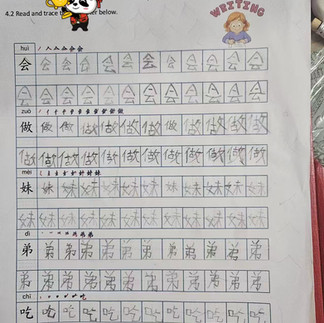 4.2 Read and trace below.
WRITING
huì
会 会 会 会 会 会 会 会 会 会 会 会
会 会 会 会 会 会 会 会 会 会 会 会
zuò
做 做 做 做 做 做 做 做 做 做 做 做
做 做 做 做 做 做 做 做 做 做 做 做
mèi
妹 妹 妹 妹 妹 妹 妹 妹 妹 妹 妹 妹
妹 妹 妹 妹 妹 妹 妹 妹 妹 妹 妹 妹
dì
弟 弟 弟 弟 弟 弟 弟 弟 弟 弟 弟 弟
弟 弟 弟 弟 弟 弟 弟 弟 弟 弟 弟 弟
chī
吃 吃 吃 吃 吃 吃 吃 吃 吃 吃 吃 吃